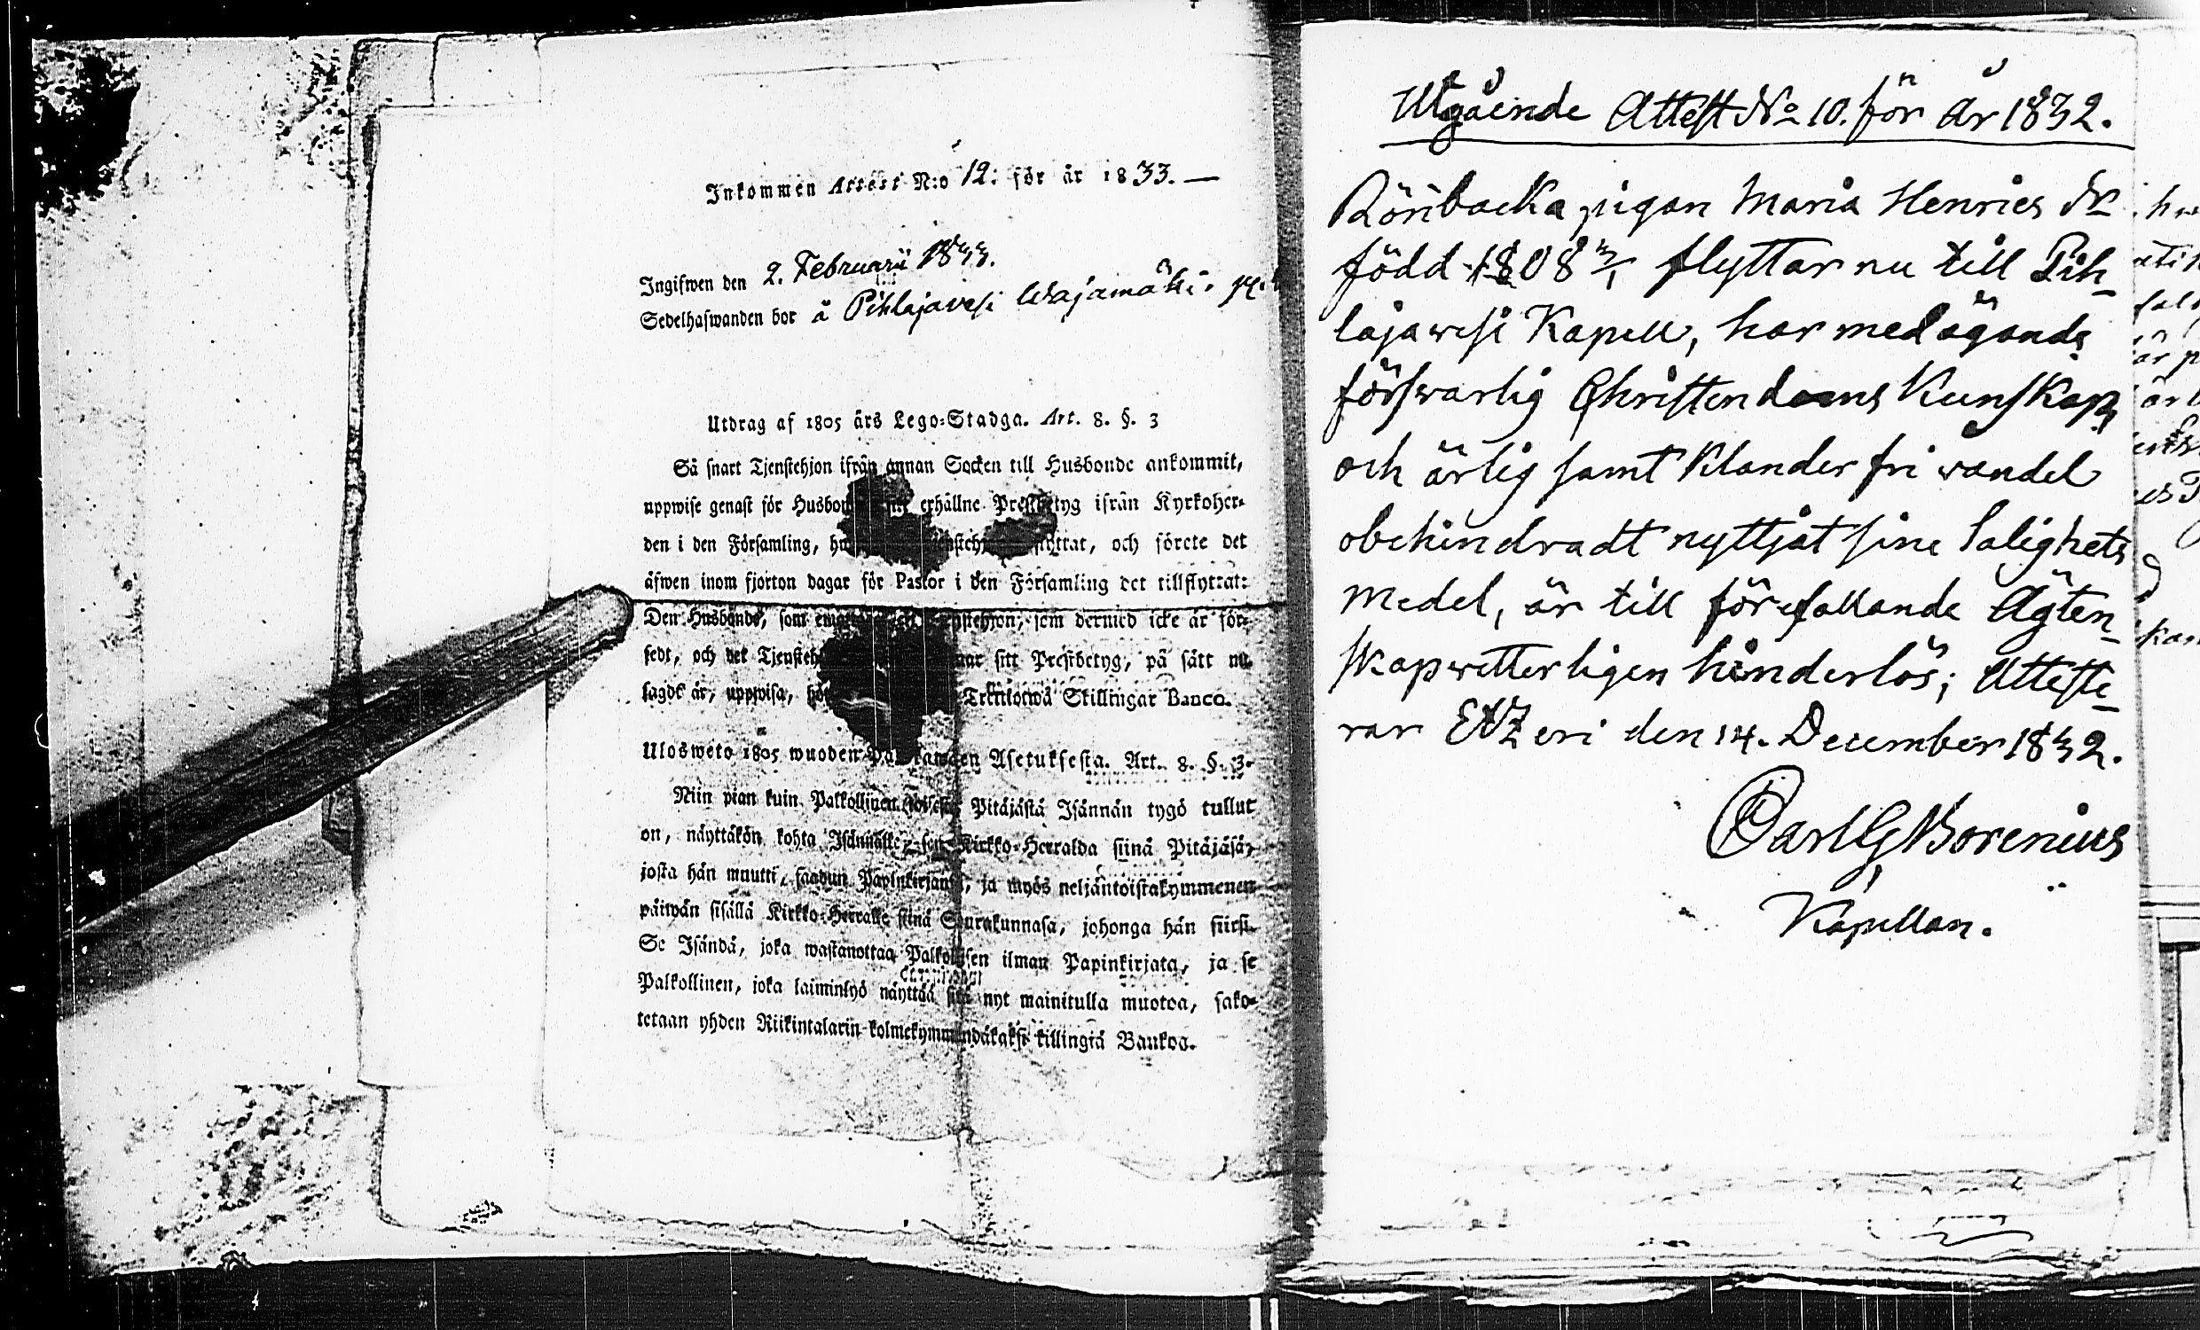 Inkommen Attest N:o 12: för år 1833. —
Ingifwen den 2. Februarii 1833.
Sedelhafwanden bor å Pihlajavesi Wajamäki.
Utdrag af 1805 års Lego-Stadga. Art. 8. §. 3
Så snart Tjenstehjon ifrån annan Socken till Husbonde ankommit,
uppwise genast för Husbonde erhållne Prestbetyg ifrån Kyrkoher-
den i den Församling, flyttat, och förete det
äfwen inom fjorton dagar för Pastor i den Församling det tillflyttat:
Den Husbonde, som Tjenstehjon, som dermed icke är för-
sedt, och det Tjenstehjon sitt Prestbetyg, på sätt nu
sagdt är, uppwisa, Trettiotwå Skillingar Banco.
Ulosweto 1805 wuoden Asetuksesta. Art. 8. §. 3.
Niin pian kuin Palkollinen toisesta Pitäjästä Isännän tygö tullut
on, näyttäkön kohta Isännälle sen Kirkko-Herralda siinä Pitäjäsä,
josta hän muutti, saadun Papinkirjansa, ja myös neljäntoistakymmenen
päiwän sisällä Kirkko-Herralle siinä Seurakunnasa, johonga hän siirsi.
Se Isändä, joka wastanottaa Palkollisen ilman Papinkirjata, ja se
Palkollinen, joka laiminlyö näyttää sitä nyt mainitulla muotoa, sako-
tetaan yhden Riikintalarin kolmekymmendäkaksi killingiä Bankoa.
Utgående Attest No 10. för år 1832.
Rönbacka pigan Maria Henrics Dr
född 1808 3/1 flyttar nu till Pih-
lajawesi Kapell, har med ägande
förswarlig Christendoms Kunskap,
och ärlig samt Klander fri wandel
obehindradt nyttjat sine Salighets
medel, är till förefallande Ägten-
skap wetterligen hinderlös; Atteste-
rar Etzeri den 14. December 1832.
Carl G Borenius
Kapellan.